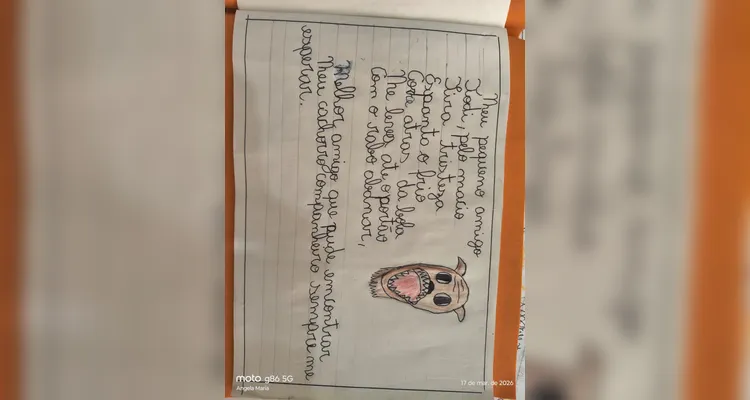 Meu pequeno amigo
Todi, pelo macio
Tira tristeza
Espanta o frio
Corre atras da bola
Me leva até o portão
Com o rabo abanar,
Melhor amigo que pude emcontrar
Meu cachorro companheiro sempre me
esperar.
moto g86 5G
Angela Maria
17 de mar. de 2026